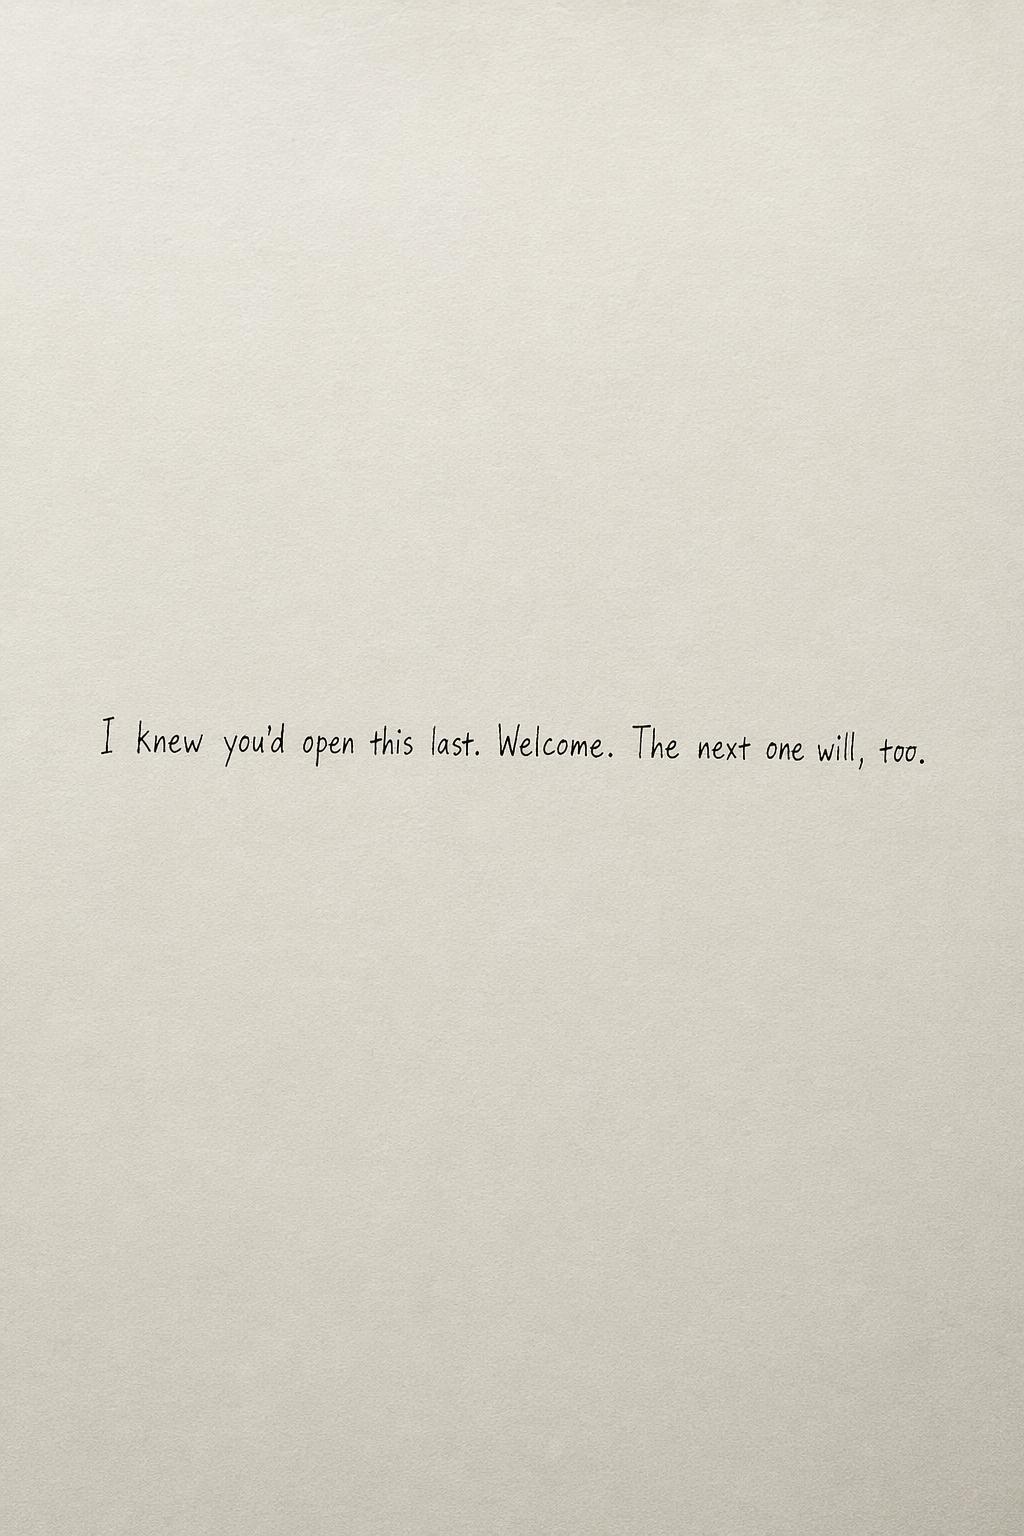 I knew you'd open this last. Welcome. The next one will, too.